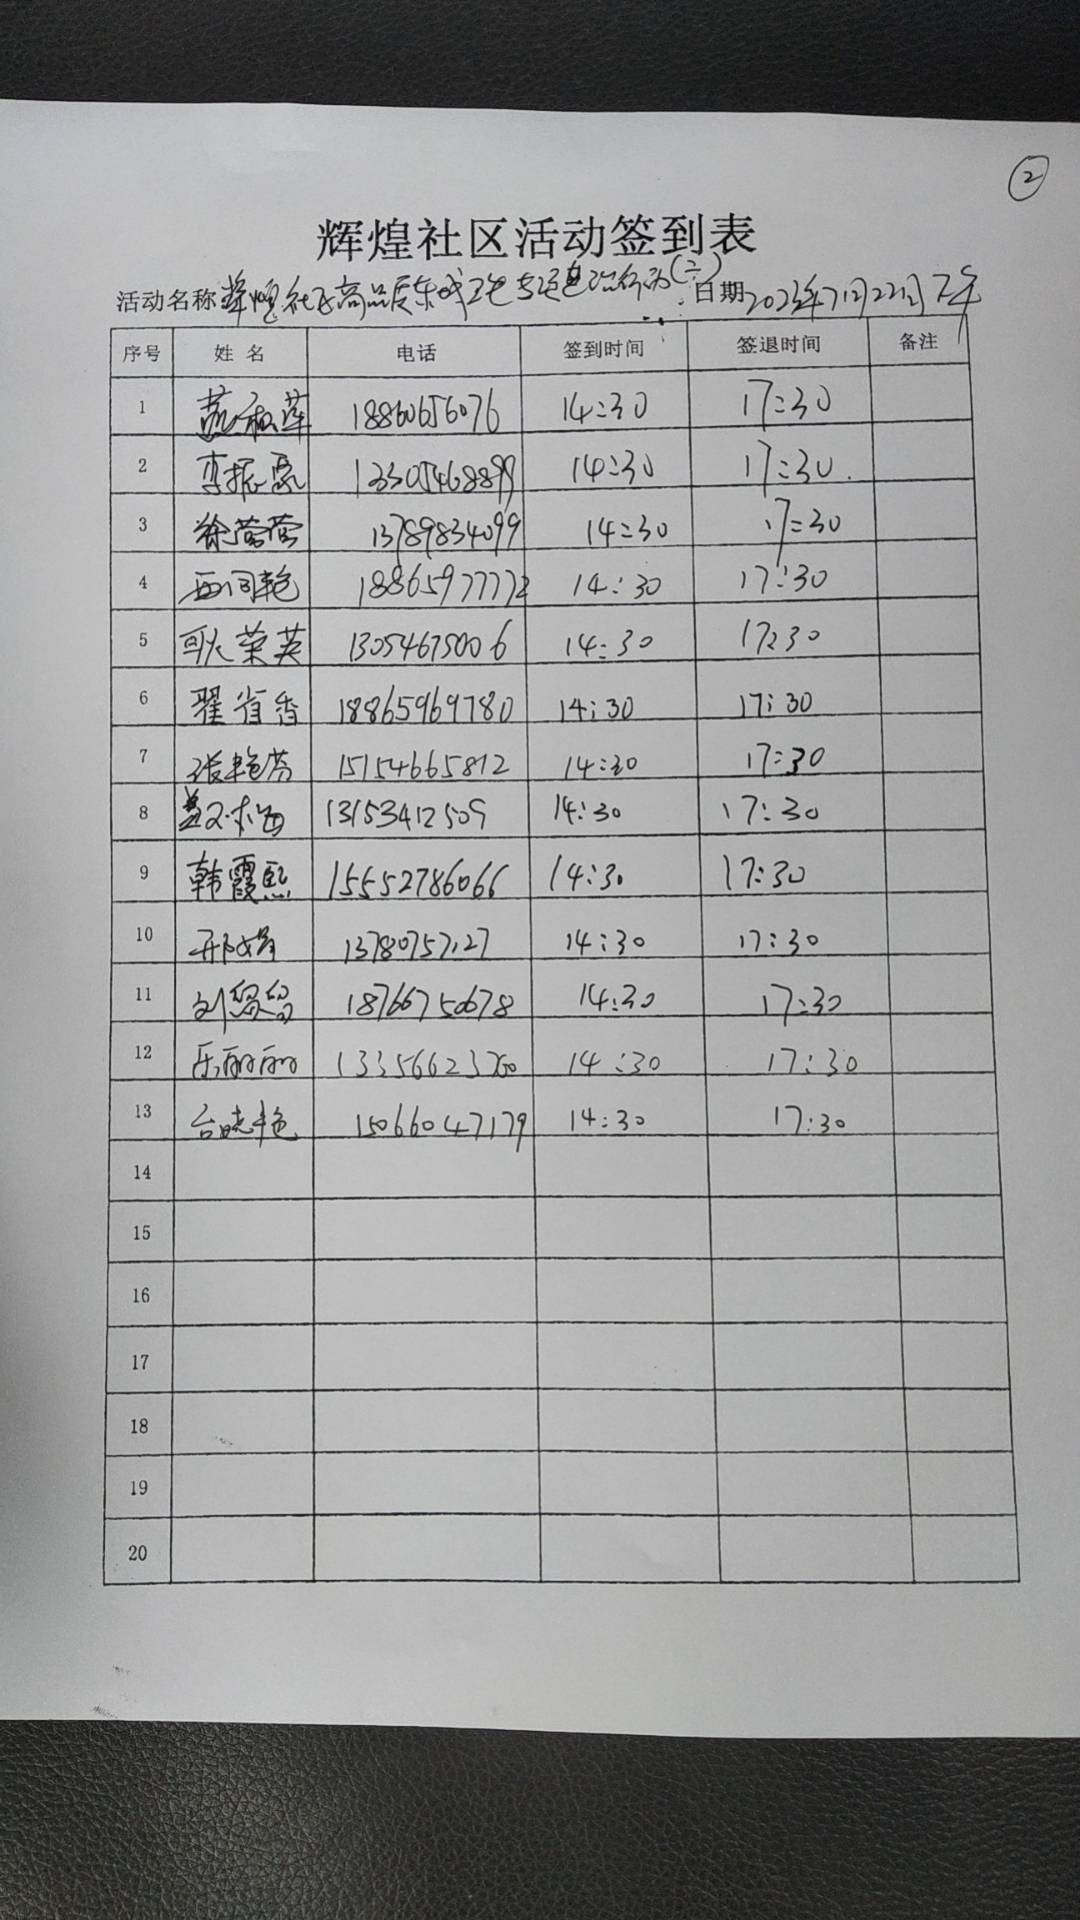 ②
辉煌社区活动签到表
活动名称 辉煌社区高品质东城卫生专项 行动(六) 日期 2023年7月22日下午
序号 姓名 电话 签到时间 签退时间 备注
1 18860656076 14:30 17:30
2 李振 13305468899 14:30 17:30
3 徐莹莹 13789834099 14:30 17:30
4 18865977772 14:30 17:30
5 耿荣英 13054675006 14:30 17:30
6 翟省香 18865969780 14:30 17:30
7 张艳芬 15154665812 14:30 17:30
8 13153412509 14:30 17:30
9 韩霞熙 15552786066 14:30 17:30
10 邢娟 13780757127 14:30 17:30
11 刘 18766750678 14:30 17:30
12 丽丽 13356623760 14:30 17:30
13 台晓艳 15066047179 14:30 17:30
14
15
16
17
18
19
20